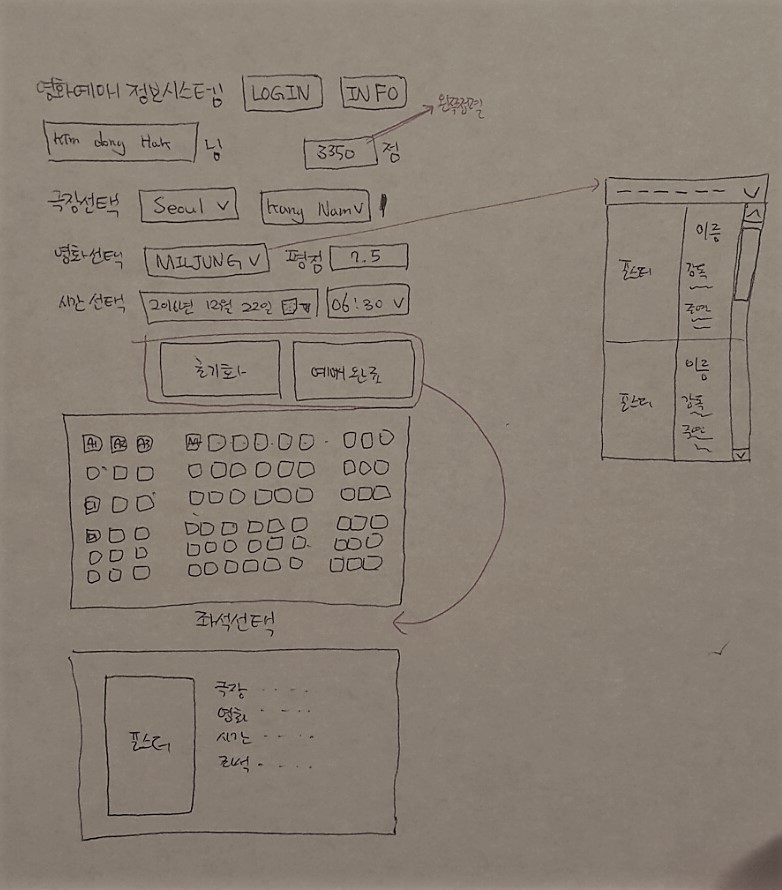 영화예매 정보시스템 LOGIN INFO
Kim dong Hak 님 3350 점
극장선택 Seoul Kang Nam
영화선택 MILJUNG 평점 7.5
시간 선택 2016년 12월 22일 06:30
초기화 예매 완료
A1 A2 A3 A4
C1
좌석선택
포스터
극장
영화
시간
좌석
이름
포스터 감독
이름
포스터 감독